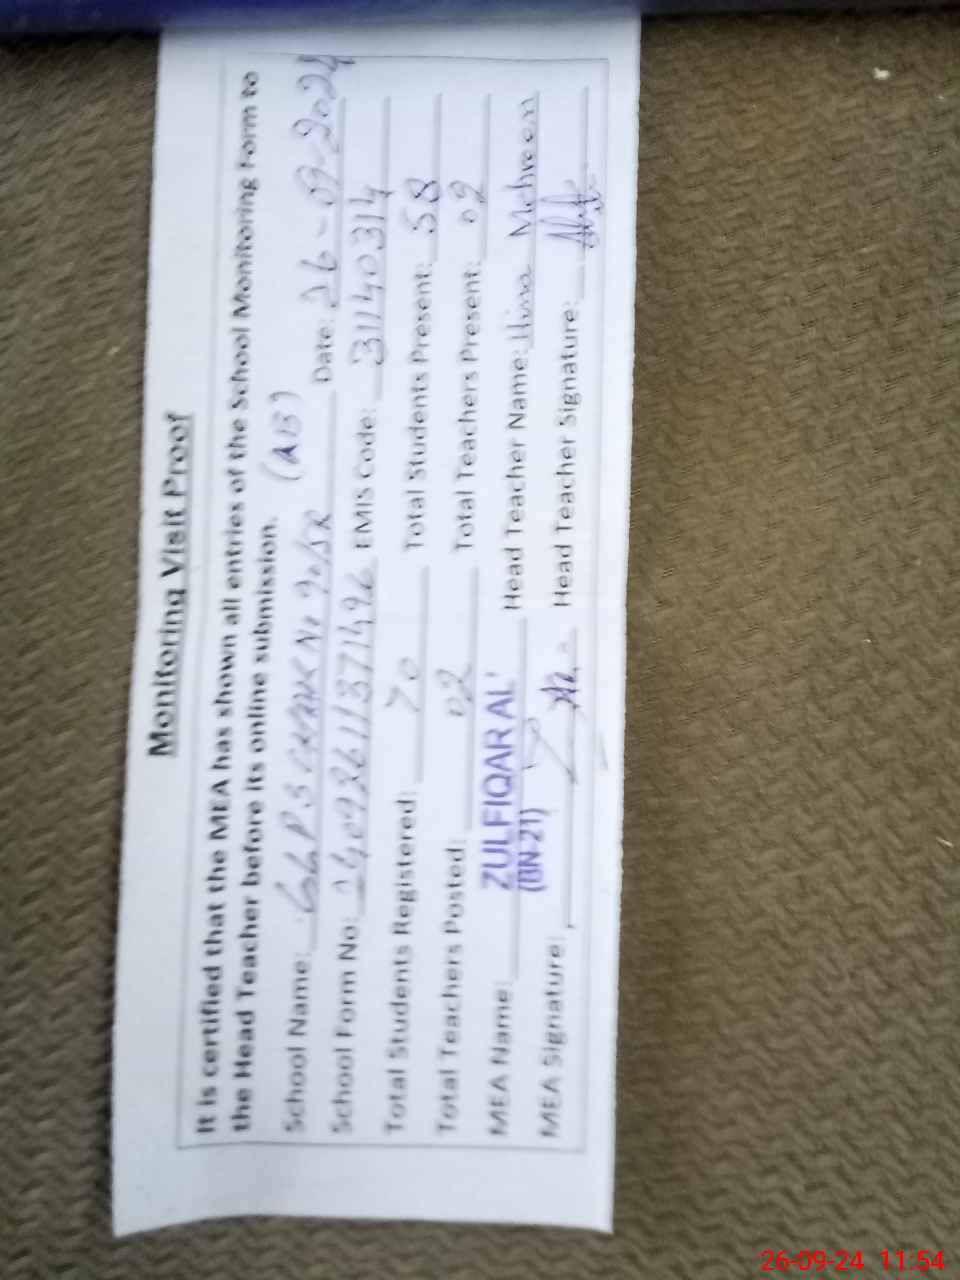 Monitoring Visit Proof
It is certified that the MEA has shown all entries of the School Monitoring Form to
the Head Teacher before its online submission.
School Name: GGPS CHAK No 90/5R (AB) Date: 26-09-2024
School Form No: EMIS Code: 31140314
Total Students Registered: 70 Total Students Present: 58
Total Teachers Posted: 02 Total Teachers Present: 02
MEA Name: ZULFIQAR ALI Head Teacher Name: Hina Mehreen
(BN-21)
MEA Signature: Head Teacher Signature:
26-09-24 11:54